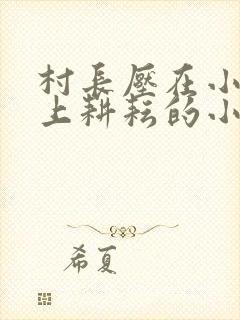 村长壓在小
上耕耘的小
希夏